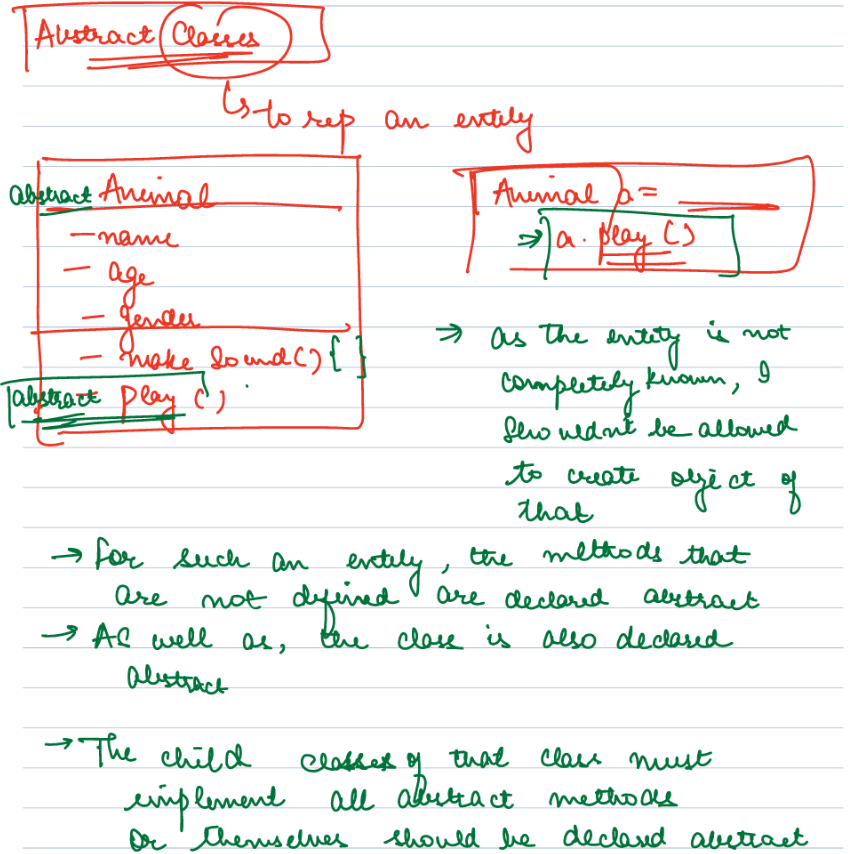 Abstract Classes
↳ to rep an entity
abstract Animal
- name
- age
- gender
- make Sound() { }
abstract - play ()
Animal a = ____
→ a. play ()
→ as the entity is not
completely known, I
shouldn't be allowed
to create object of
that
→ for such an entity, the methods that
are not defined are declared abstract
→ As well as, the class is also declared
abstract
→ The child classes of that class must
implement all abstract methods
or themselves should be declard abstract